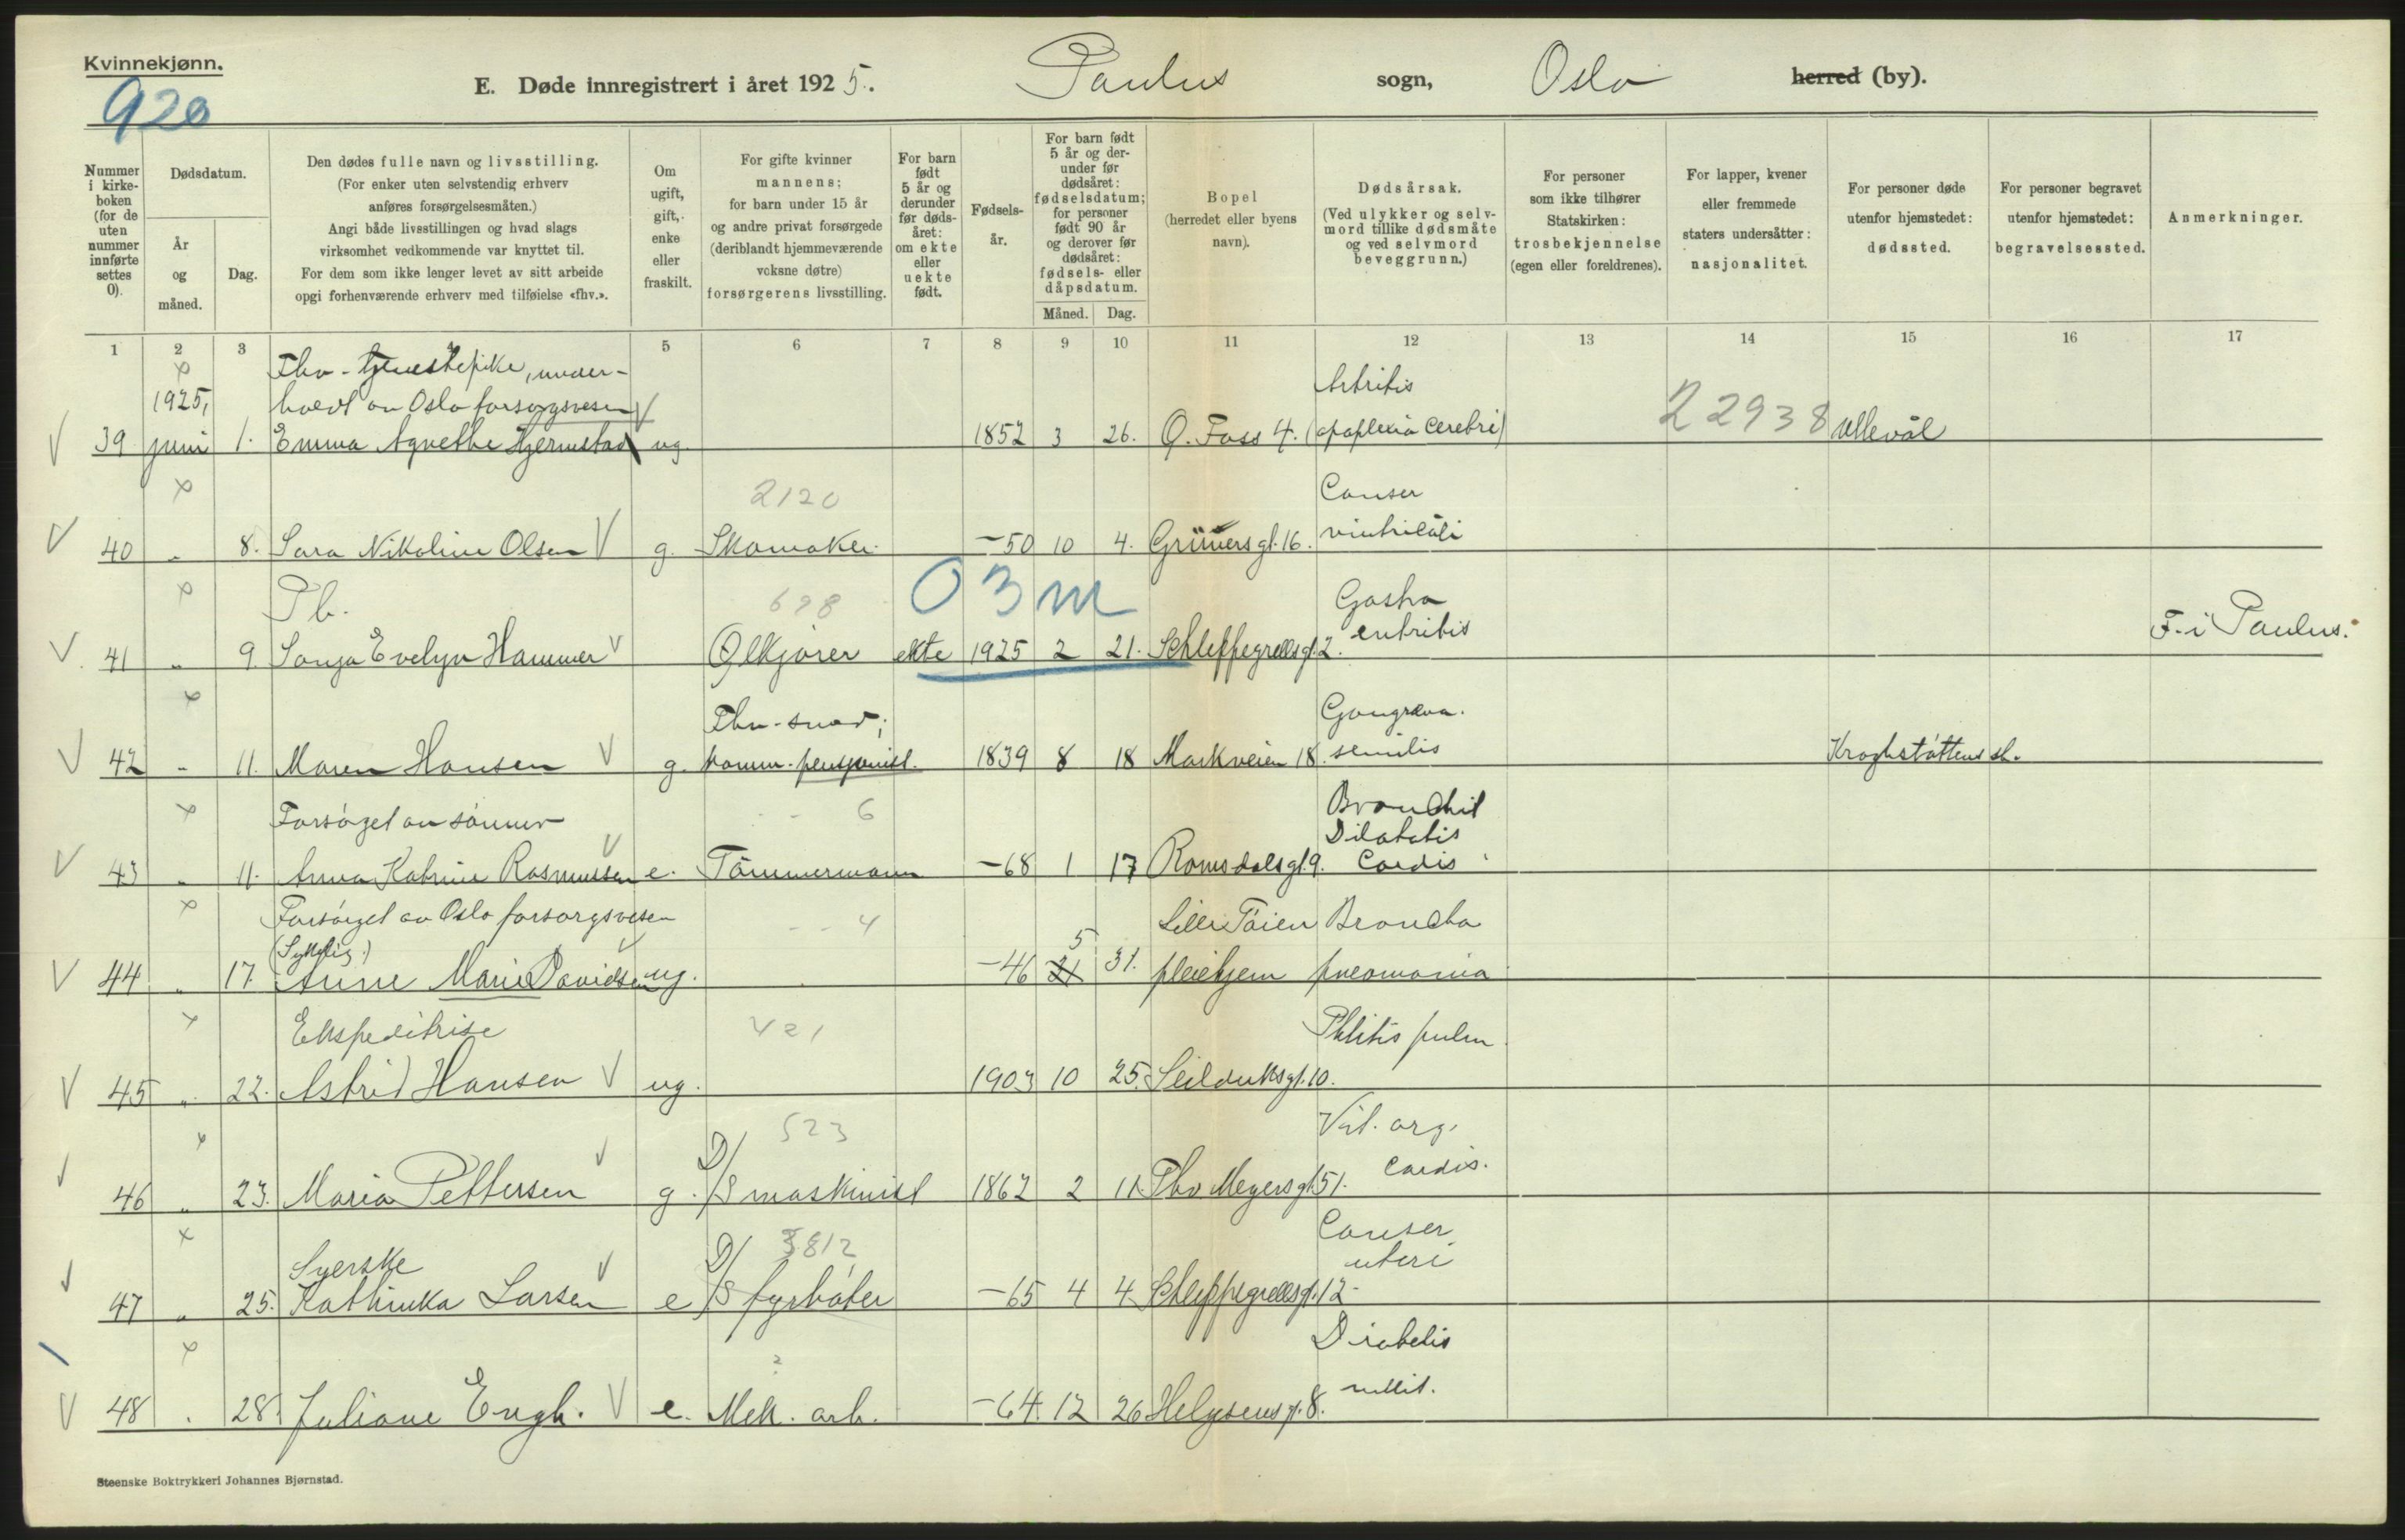 Kvinnekjønn.
920
E. Døde innregistrert i året 1925. Paulus sogn, Oslo herred (by).
Nummer i kirkeboken (for de uten nummer innførte settes 0).
Dødsdatum.
År og måned.
Dag.
Den dødes fulle navn og livsstilling.
(For enker uten selvstendig erhverv
anføres forsørgelsesmåten.)
Angi både livsstillingen og hvad slags
virksomhet vedkommende var knyttet til.
For dem som ikke lenger levet av sitt arbeide
opgi forhenværende erhverv med tilføielse «fhv.».
Om ugift, gift, enke eller fraskilt.
For gifte kvinner
mannens;
for barn under 15 år
og andre privat forsørgede
(deriblandt hjemmeværende
voksne døtre)
forsørgerens livsstilling.
For barn født 5 år og derunder før dødsåret: om ekte eller uekte født.
Fødselsår.
For barn født 5 år og derunder før dødsåret: fødselsdatum; for personer født 90 år og derover før dødsåret: fødsels- eller dåpsdatum.
Måned. Dag.
Bopel
(herredet eller byens
navn).
Dødsårsak.
(Ved ulykker og selvmord tillike dødsmåte og ved selvmord beveggrunn.)
For personer
som ikke tilhører
Statskirken:
trosbekjennelse
(egen eller foreldrenes).
For lapper, kvener
eller fremmede
staters undersåtter:
nasjonalitet.
For personer døde
utenfor hjemstedet:
dødssted.
For personer begravet
utenfor hjemstedet:
begravelsessted.
Anmerkninger.
1 2 3 5 6 7 8 9 10 11 12 13 14 15 16 17
Fhv. tjenestepike, under-
1925, holdt av Oslo forsorgsvesen Artritis
39 juni 1. Emma Agnethe Hjermstad ug. 1852 3 26. O. Foss 4. (apoplexia cerebri) 22938 Ullevål
2120 Canser
40 " 8. Sara Nikoline Olsen g. Skomaker -50 10 4. Grünersgt. 16. vintriculi
Pb. 698 03m Gastro
41 " 9. Sonja Evelyn Hammer Ølkjører ekte 1925 2 21. Schleppegrellsgt. 2. entritis F. i Paulus.
Fhv. smed; Gangræna.
42 - 11. Maren Hansen g. komm. pensjonist. 1839 8 18 Markveien 18. senilis Kroghstøttens sk.
Forsørget av sønner 6 Bronchit
Dilatatis
43 " 11. Anna Katrine Rasmussen e. Tømmermann -68 1 17 Romsdalsgt. 9. Cordis
Forsørget av Oslo forsorgsvesen 4 Lille Tøien Broncho
(Sykelig.) 5
44 " 17. Anne Marie Davidsen ug. -46 21 31. pleiehjem pneomonia
Ekspeditrise 421 Phtitis pulm.
45 " 22. Astrid Hansen ug. 1903 10 25. Seilduksgt. 10.
523 Vit. org.
46 " 23. Maria Pettersen g. D/S maskinist 1862 2 11. Thv Meyersgt. 51. Cordis.
3812 Canser
Syerske uteri
47 " 25. Kathinka Larsen e D/S fyrbøter -65 4 4 Schleppegrellsgt. 12.
? Diabetis
48 . 28. Juliane Engh. e. Mek. arb. -64 12 26 Helgesensgt. 8. mellit.
Steenske Boktrykkeri Johannes Bjørnstad.